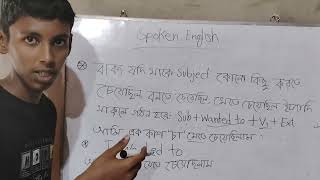 Spoken English
বাক্যে যদি থাকে Subject কোনো কিছু করতে
চেয়েছিল বলতে চেয়েছিল যেতে চেয়েছিল ইত্যাদি
থাকলে গঠন হবে: Sub + Wanted to + V₁ + Ext
আমি এক কাপ চা খেতে চেয়েছিলাম।
I to
খেতে চেয়েছিলাম